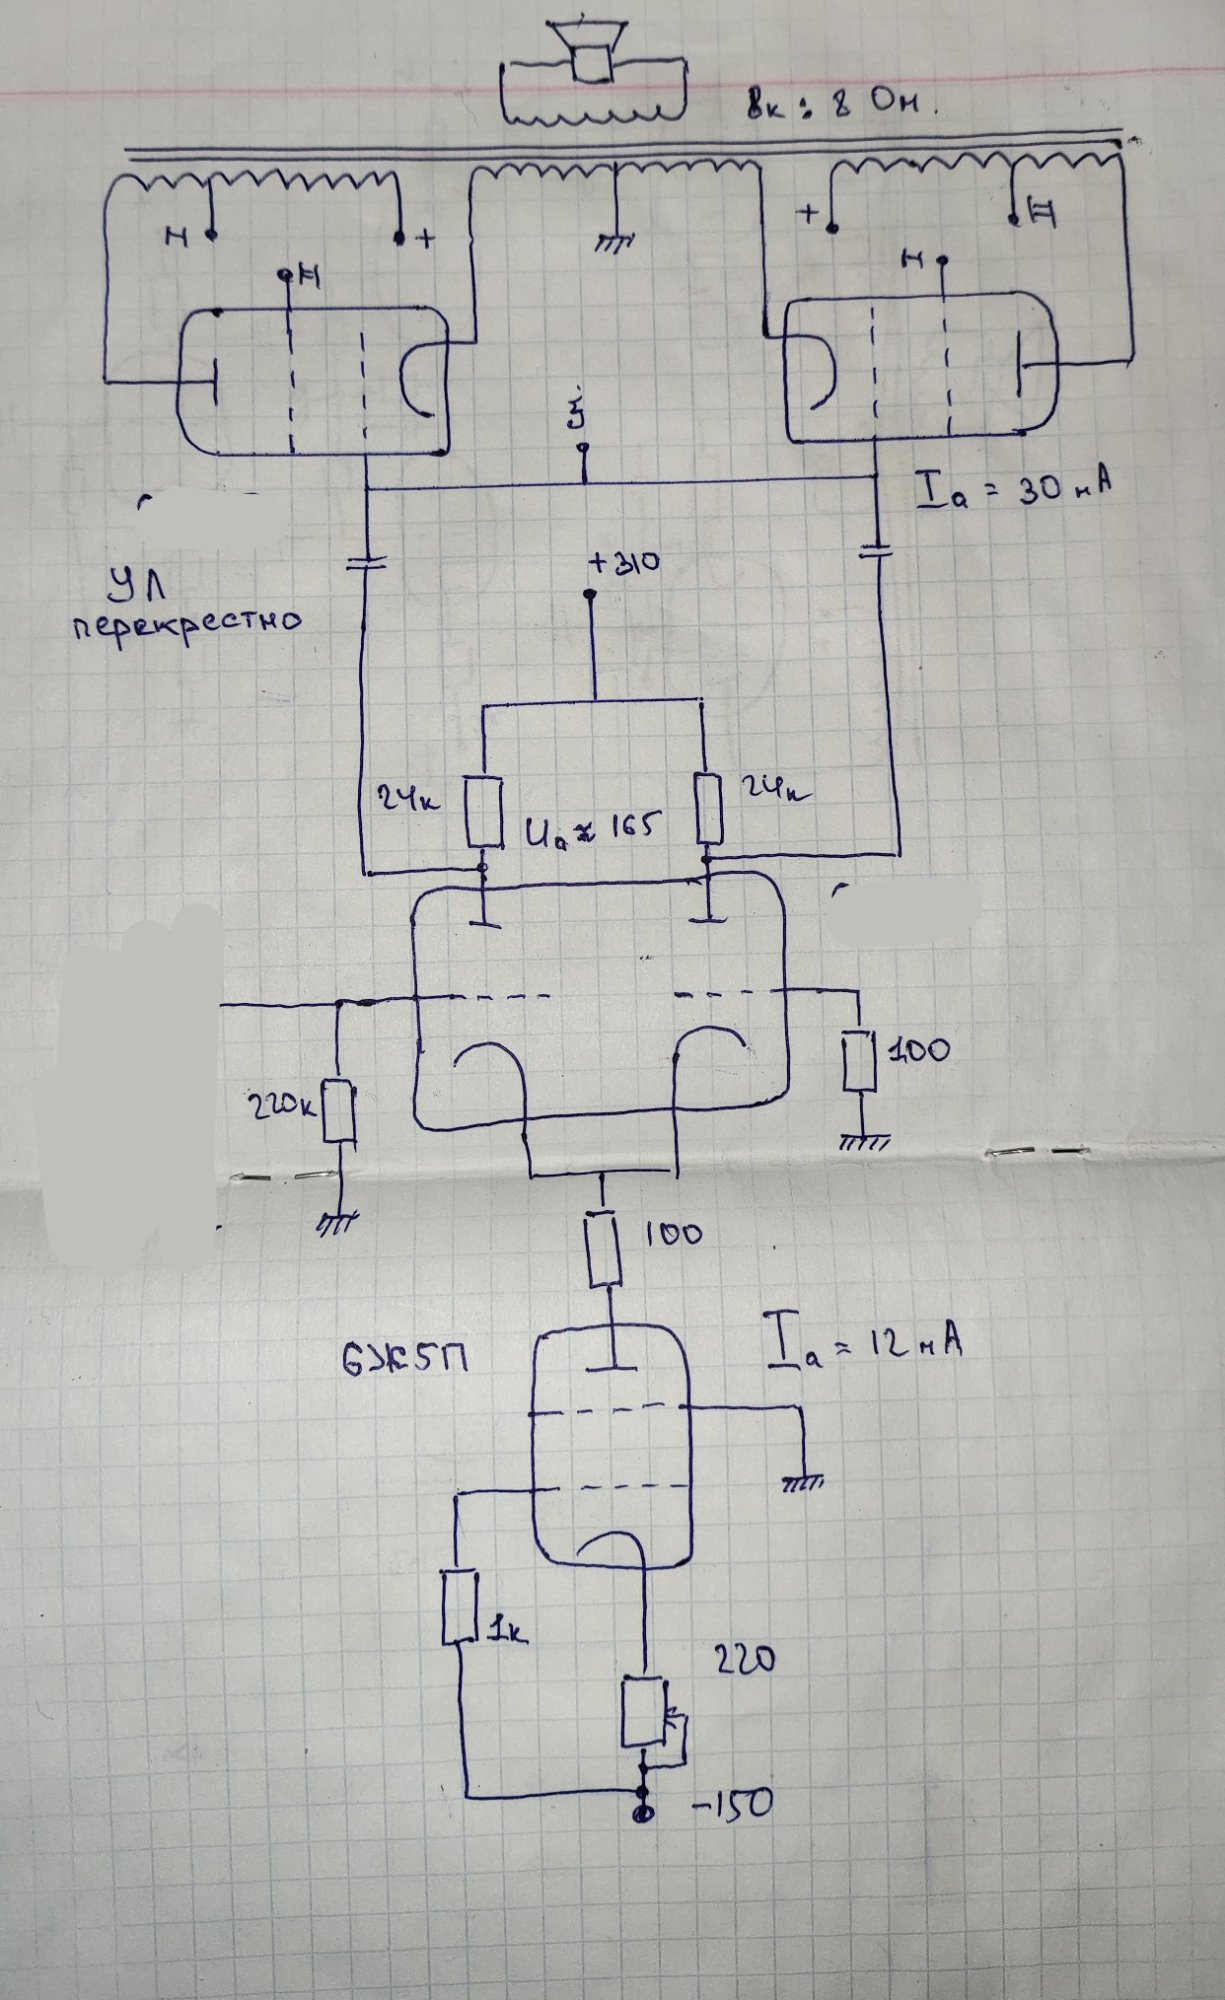 8к : 8 Ом.
H
+
+
H
H
H
Iₐ = 30 мА
+310
УЛ
перекрестно
24к
Uₐ ≈ 165
24к
100
220к
100
6Ж5П
Iₐ = 12 мА
1к
220
-150